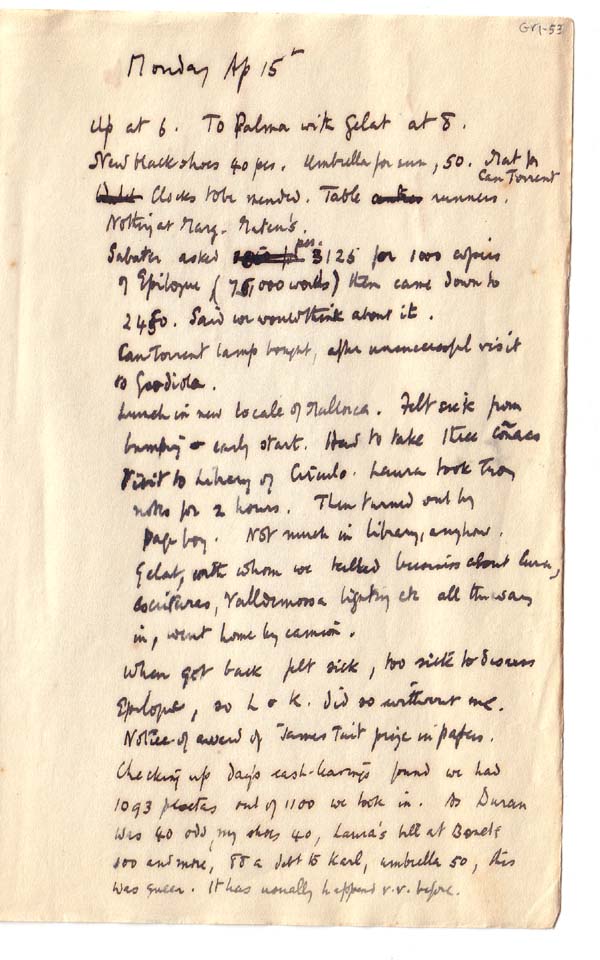 GRI-53
Monday Ap 15th
Up at 6. To Palma with Gelat at 8.
New black shoes 40 pes. Umbrella for sun, 50. Mat for
Can Torrent
Clocks to be mended. Table runners.
Nothing at Marg. Maten's.
Sabater asked pes. 3125 for 1000 copies
of Epilogue (75,000 words) then came down to
2450. Said we would think about it.
Can Torrent lamp bought, after unsuccessful visit
to Gordiola.
Lunch in new locale of Mallorca. Felt sick from
bumping & early start. Had to take three coñacs
Visit to Library of Circulo. Laura took Troy
notes for 2 hours. Then turned out by
page boy. Not much in library, anyhow.
Gelat, with whom we talked business about Luna,
escrituras, Valldemossa lighting etc all the way
in, went home by camion.
When got back felt sick, too sick to discuss
Epilogue, so L & K. did so without me.
Notice of award of James Tait prize in papers.
Checking up day's cash-leavings found we had
1093 pesetas out of 1100 we took in. As Duran
was 40 odd, my shoes 40, Laura's bill at Bonets
100 and more, 88 a debt to Karl, umbrella 50, this
was queer. It has usually happened v.v. before.